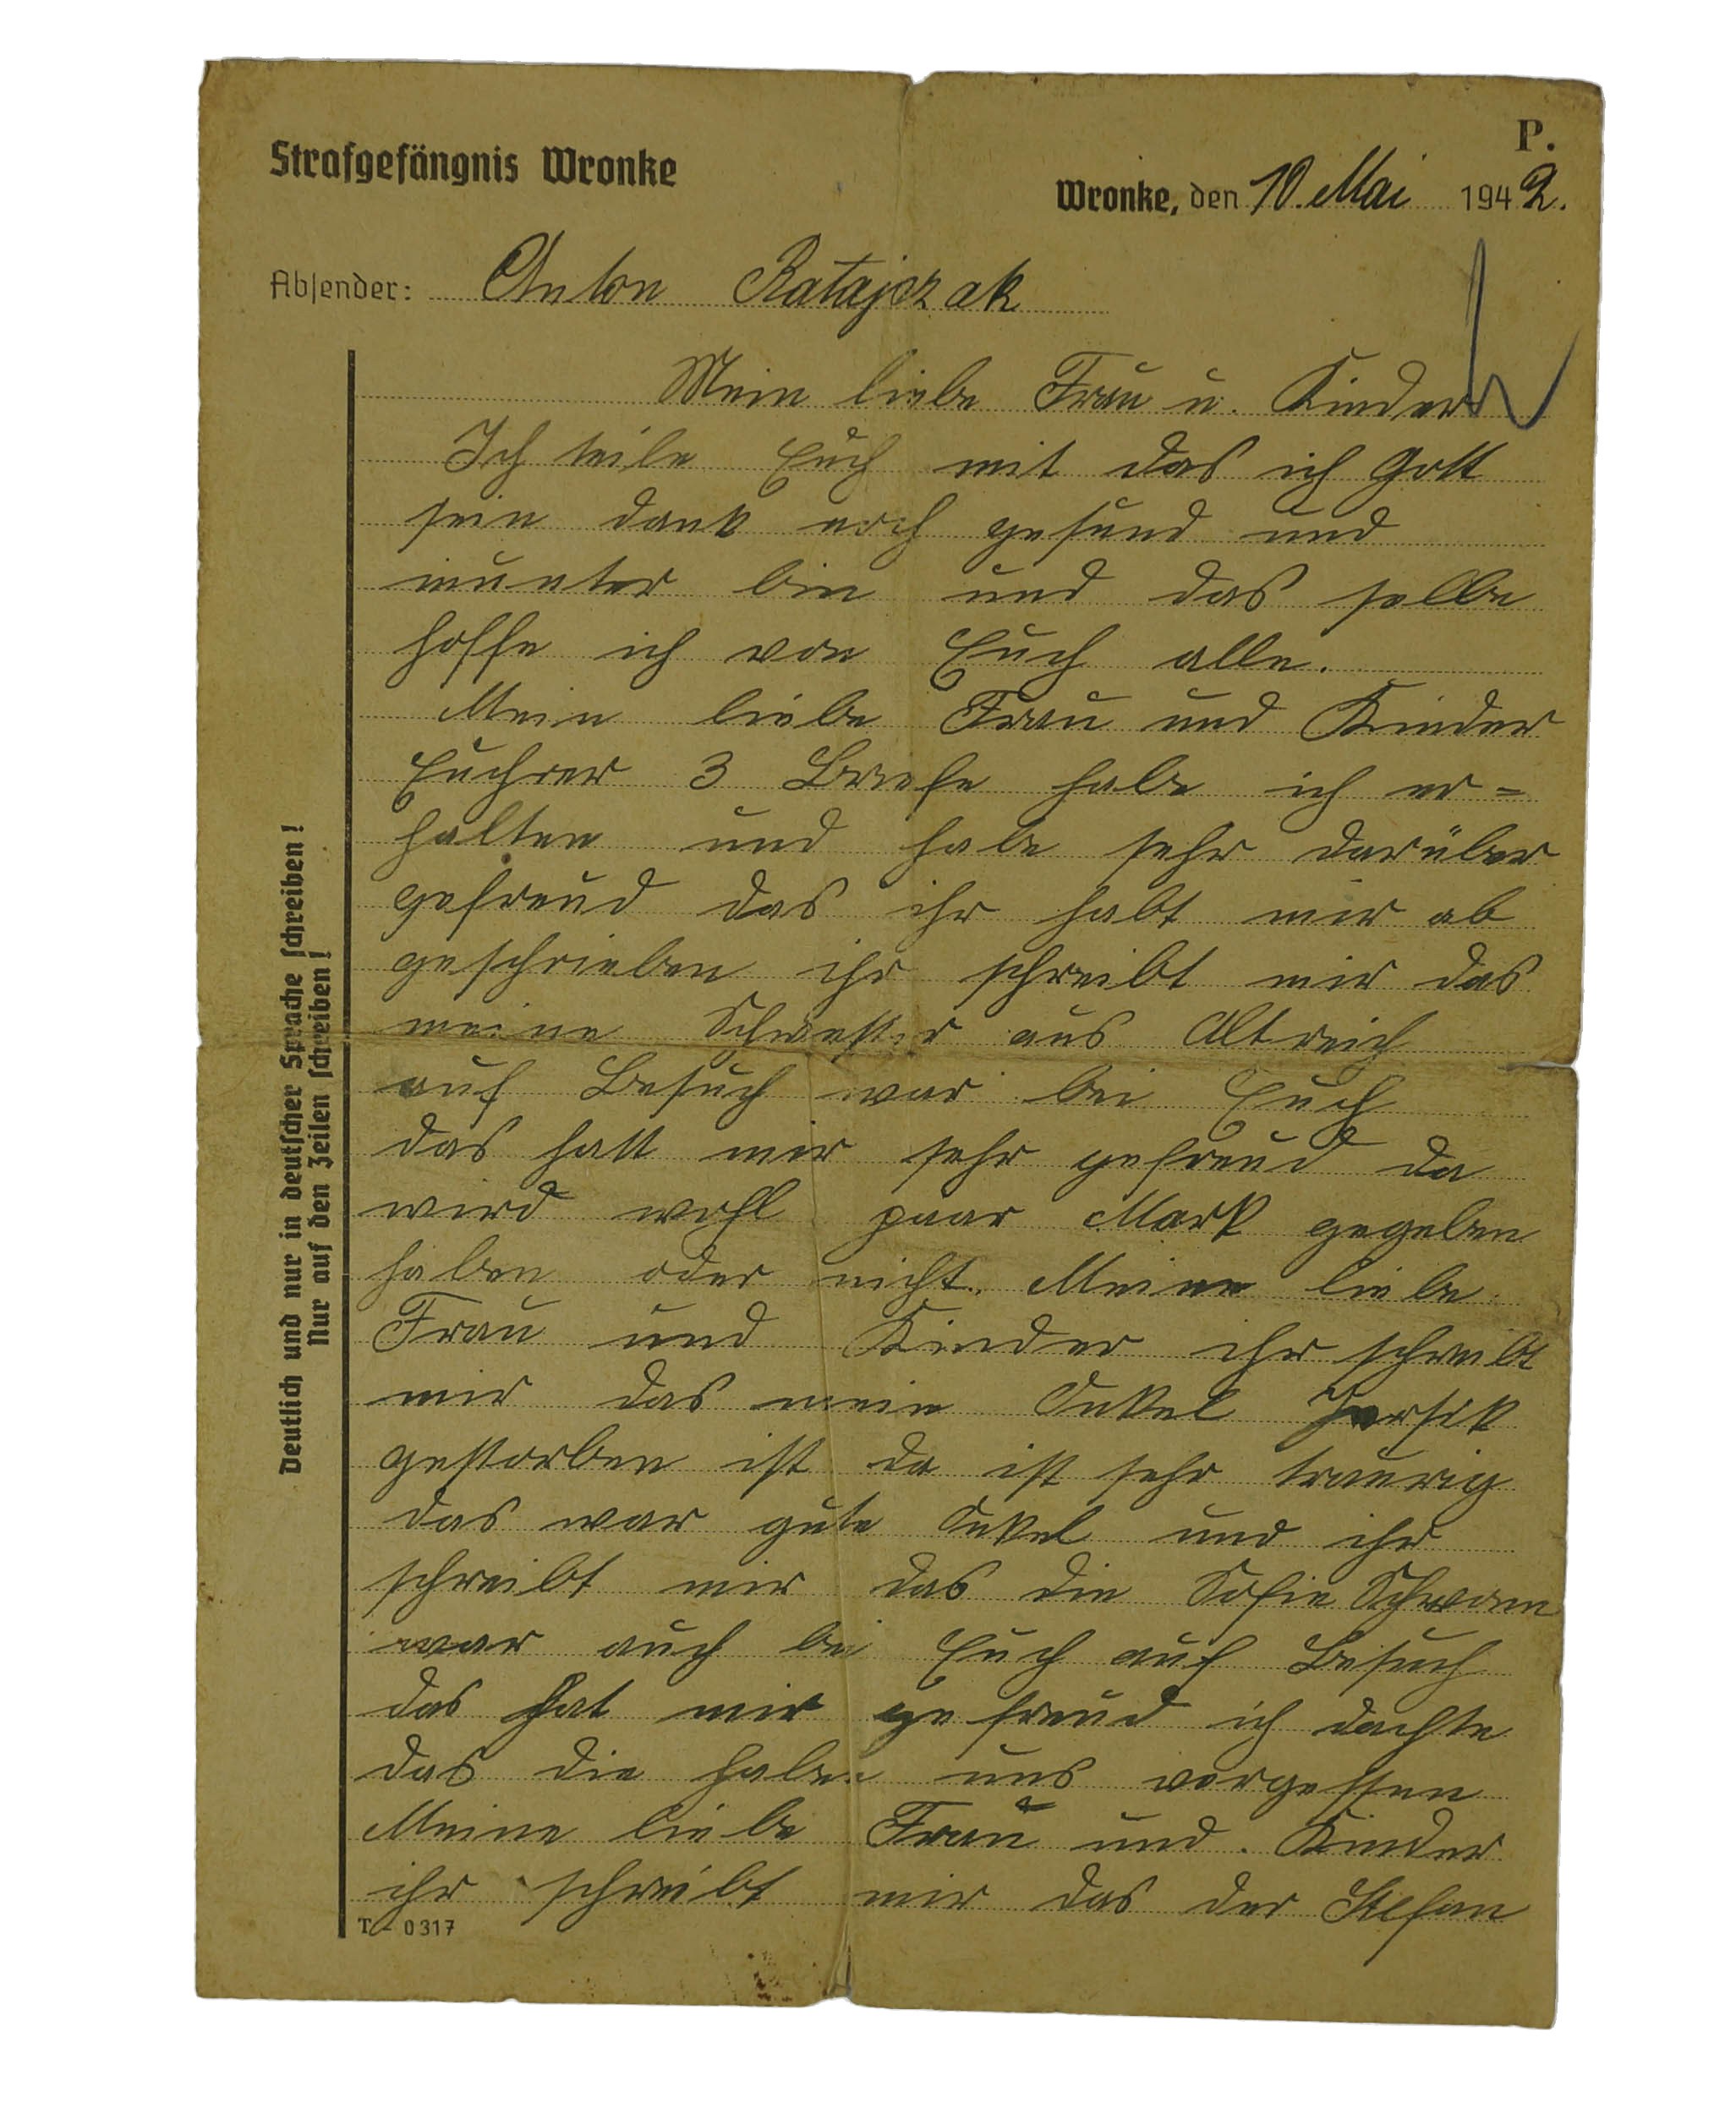 P.
Strafgefängnis Wronke
Wronke, den 10. Mai 1942.
Absender: Anton Ratajczak
Mein liebe Frau u. Kinder
Ich teile Euch mit das ich Gott
sein dank noch gesund und
munter bin und das selbe
hoffe ich von Euch alle.
Mein liebe Frau und Kinder
Euchrer 3 Briefe habe ich er=
halten und habe sehr darüber
gefreud das ihr habt mir ab
geschrieben ihr schreibt mir das
meine Schwester aus Altreich
auf Besuch war bei Euch
das hatt mir sehr gefreud da
wird wohl paar Mark gegeben
haben oder nicht. Meine liebe
Frau und Kinder ihr schreibt
mir das mein Onkel
gestorben ist da ist sehr traurig
das war gute Onkel und ihr
schreibt mir das die Sofie
war auch bei Euch auf Besuch
das hat mir gefreud ich dachte
das die haben uns vergessen
Meine liebe Frau und Kinder
ihr schreibt mir das der Stefan
T - 0317
Deutlich und nur in deutscher Sprache schreiben!
Nur auf den Zeilen schreiben!